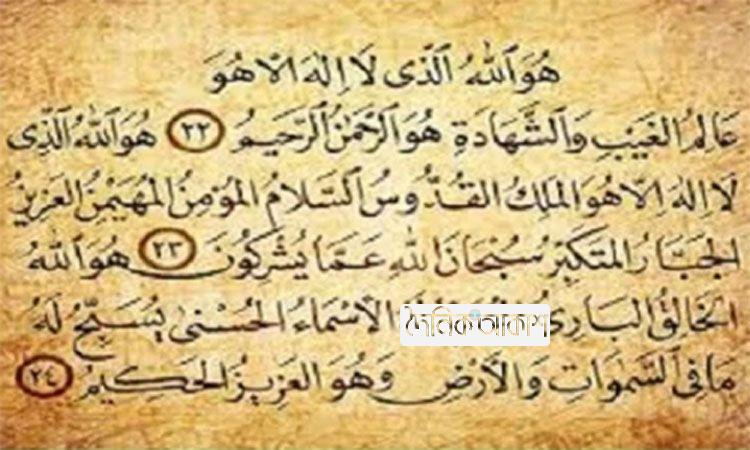 هُوَ ٱللهُ ٱلَّذِى لَا اِلٰهَ اِلَّا هُوَ
عَالِمُ الغَيْبِ وَٱلشَّهَادَةِ هُوَ الرَّحْمَٰنُ ٱلرَّحِيمُ ٢٢ هُوَ ٱللهُ ٱلَّذِى
لَا اِلٰهَ اِلَّا هُوَ المَلِكُ القُدُّوسُ ٱلسَّلَامُ المُؤْمِنُ المُهَيْمِنُ العَزِيزُ
الجَبَّارُ المُتَكَبِّرُ سُبْحَانَ اللهِ عَمَّا يُشْرِكُونَ ٢٣ هُوَ ٱللهُ
الخَالِقُ البَارِئُ الأَسْمَاءُ الحُسْنَىٰ يُسَبِّحُ لَهُ
দৈনিক আকাশ
مَا فِى ٱلسَّمٰوَاتِ وَالأَرْضِ وَهُوَ العَزِيزُ الحَكِيمُ ٢٤